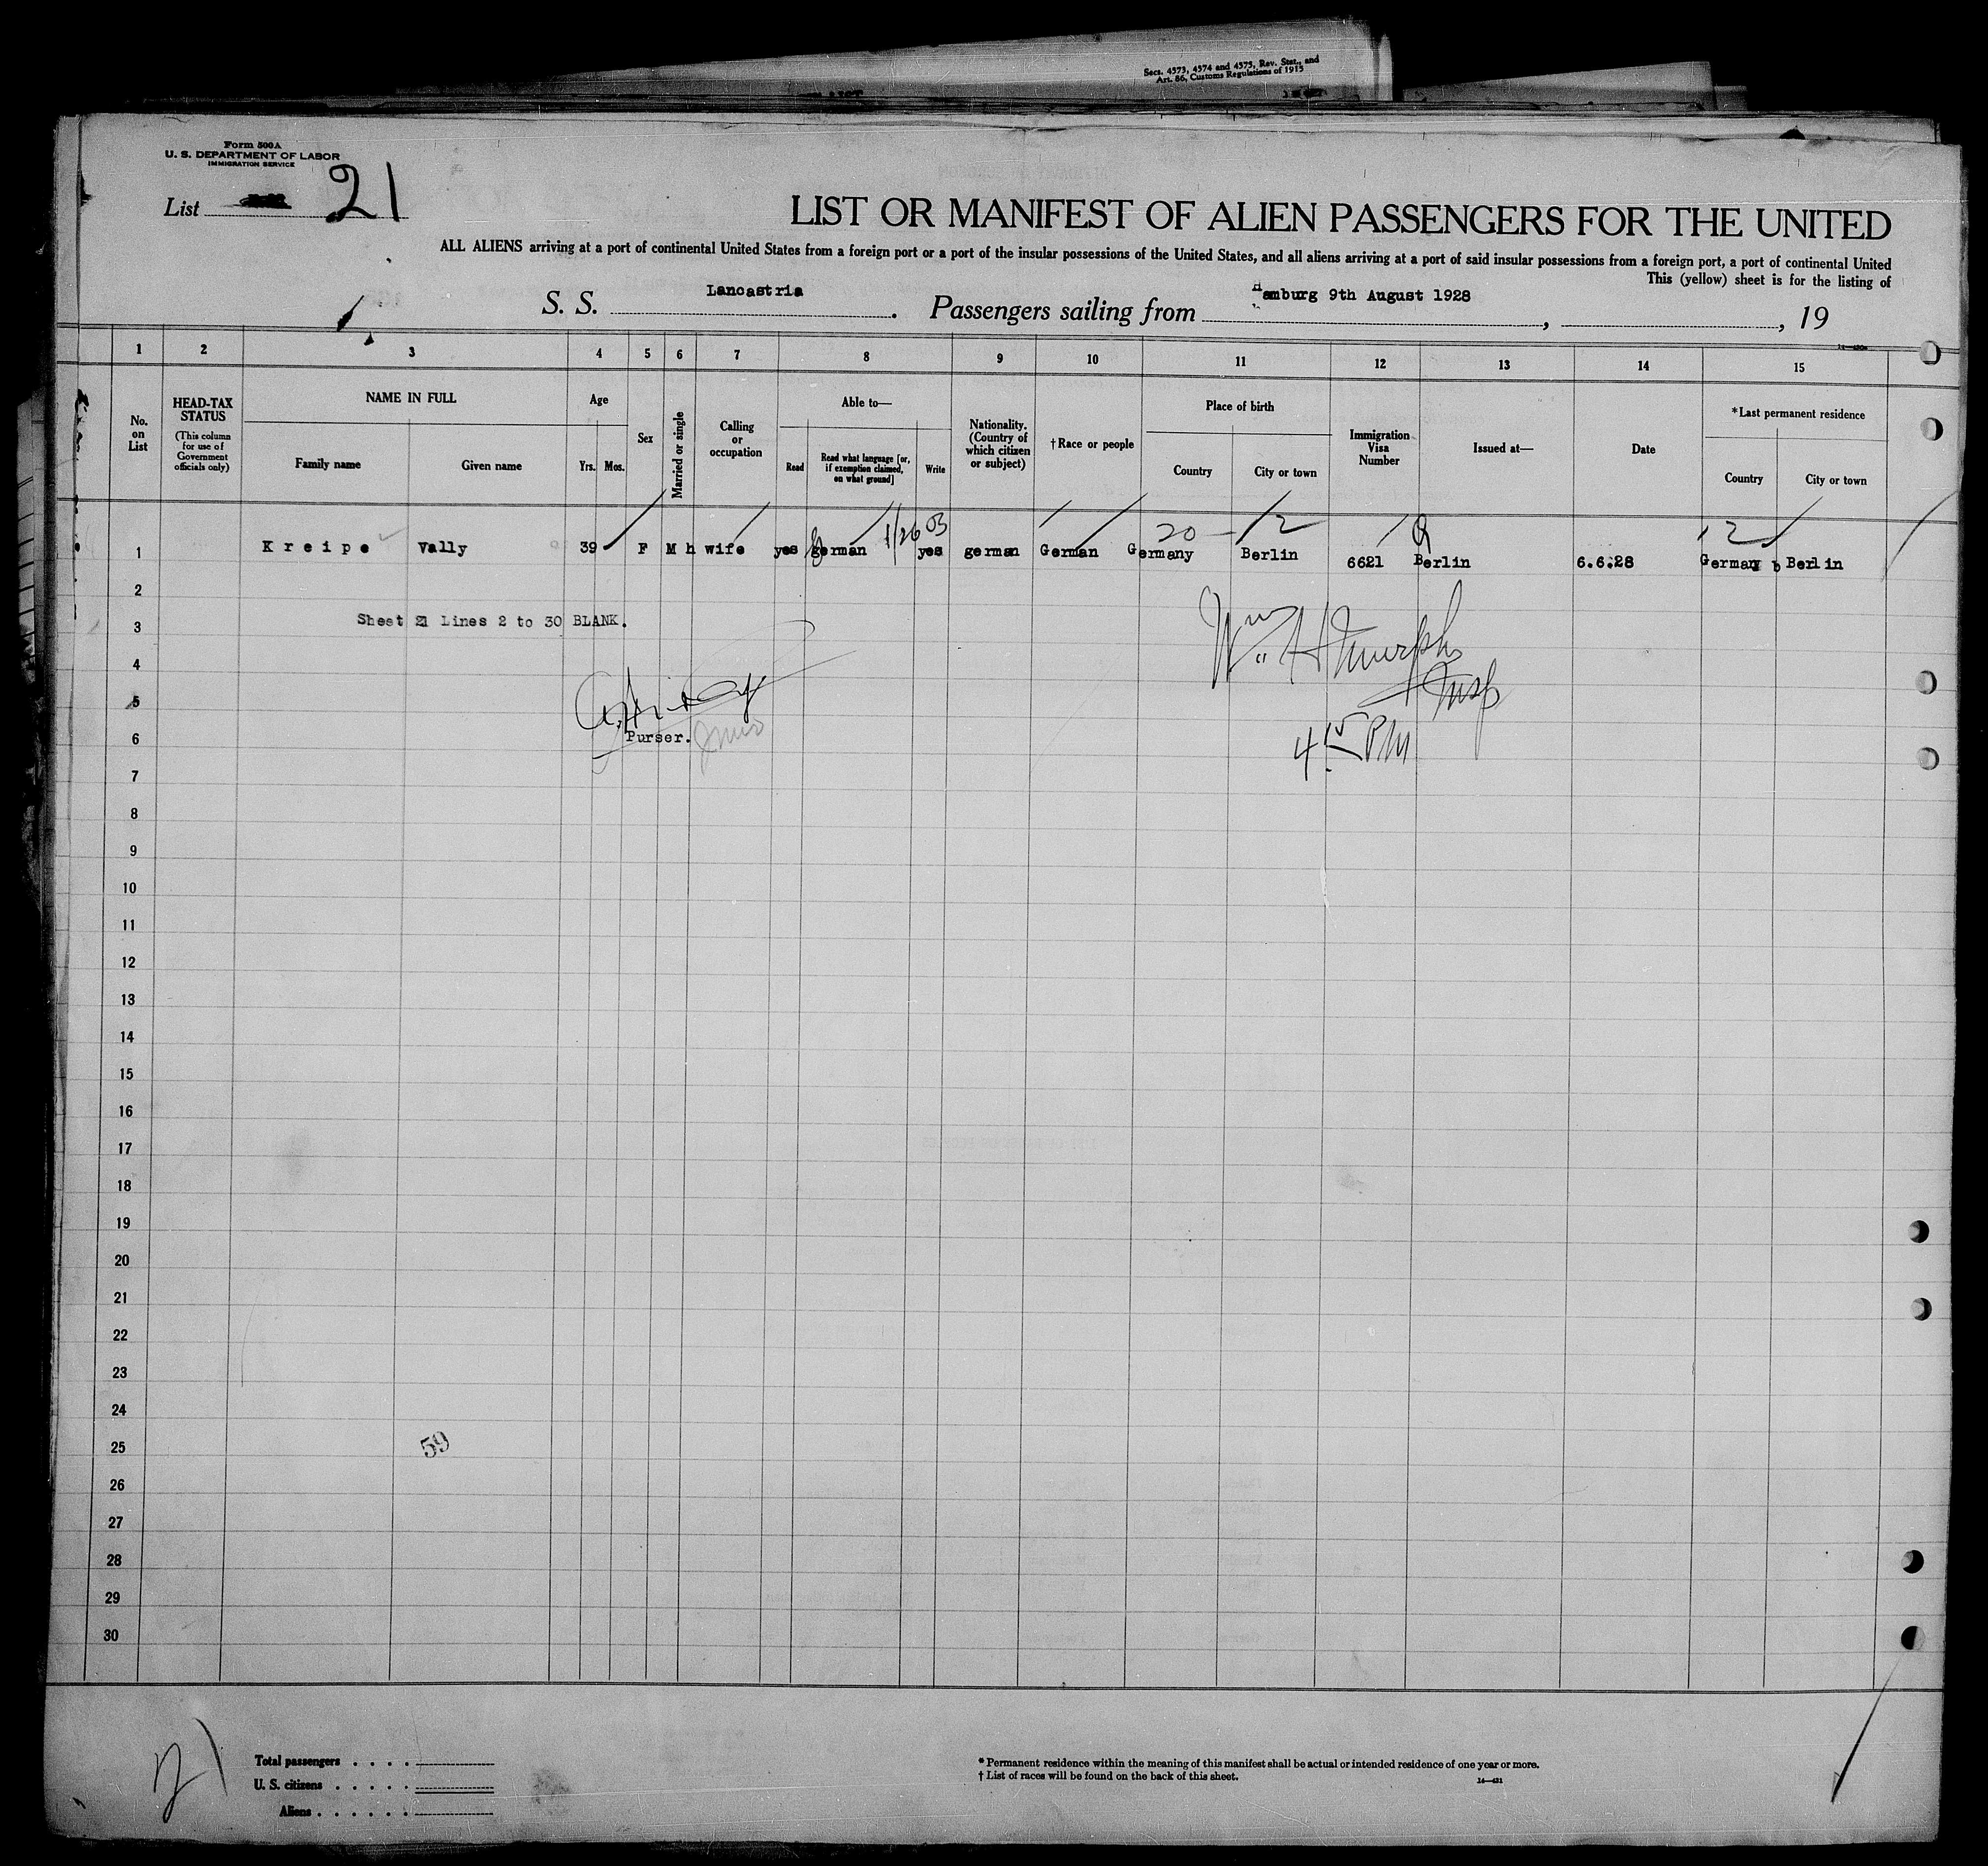 Secs. 4573, 4574 and 4575, Rev. Stat., and
Art. 86, Customs Regulations of 1915
Form 500A
U. S. DEPARTMENT OF LABOR
IMMIGRATION SERVICE
List 21
LIST OR MANIFEST OF ALIEN PASSENGERS FOR THE UNITED
ALL ALIENS arriving at a port of continental United States from a foreign port or a port of the insular possessions of the United States, and all aliens arriving at a port of said insular possessions from a foreign port, a port of continental United
This (yellow) sheet is for the listing of
S. S. Lancastria. Passengers sailing from Hamburg 9th August 1928, , 19
1 2 3 4 5 6 7 8 9 10 11 12 13 14 15
No. on List
HEAD-TAX STATUS
(This column for use of Government officials only)
NAME IN FULL
Family name Given name
Age
Yrs. Mos.
Sex
Married or single
Calling or occupation
Able to—
Read
Read what language [or, if exemption claimed, on what ground]
Write
Nationality. (Country of which citizen or subject)
†Race or people
Place of birth
Country City or town
Immigration Visa Number
Issued at—
Date
*Last permanent residence
Country City or town
1/26 03 20 - 12 12
1 Kreipe Vally 39 F M h wife yes german yes german German Germany Berlin 6621 Berlin 6.6.28 Germany Berlin
2
Sheet 21 Lines 2 to 30 BLANK.
3
Wm H Murphy
4
Insp
5
6 Purser.
4 15 PM
7
8
9
10
11
12
13
14
15
16
17
18
19
20
21
22
23
24
25
59
26
27
28
29
30
21
Total passengers . . . .
U. S. citizens . . . . .
Aliens . . . . . .
* Permanent residence within the meaning of this manifest shall be actual or intended residence of one year or more.
† List of races will be found on the back of this sheet.
14—431